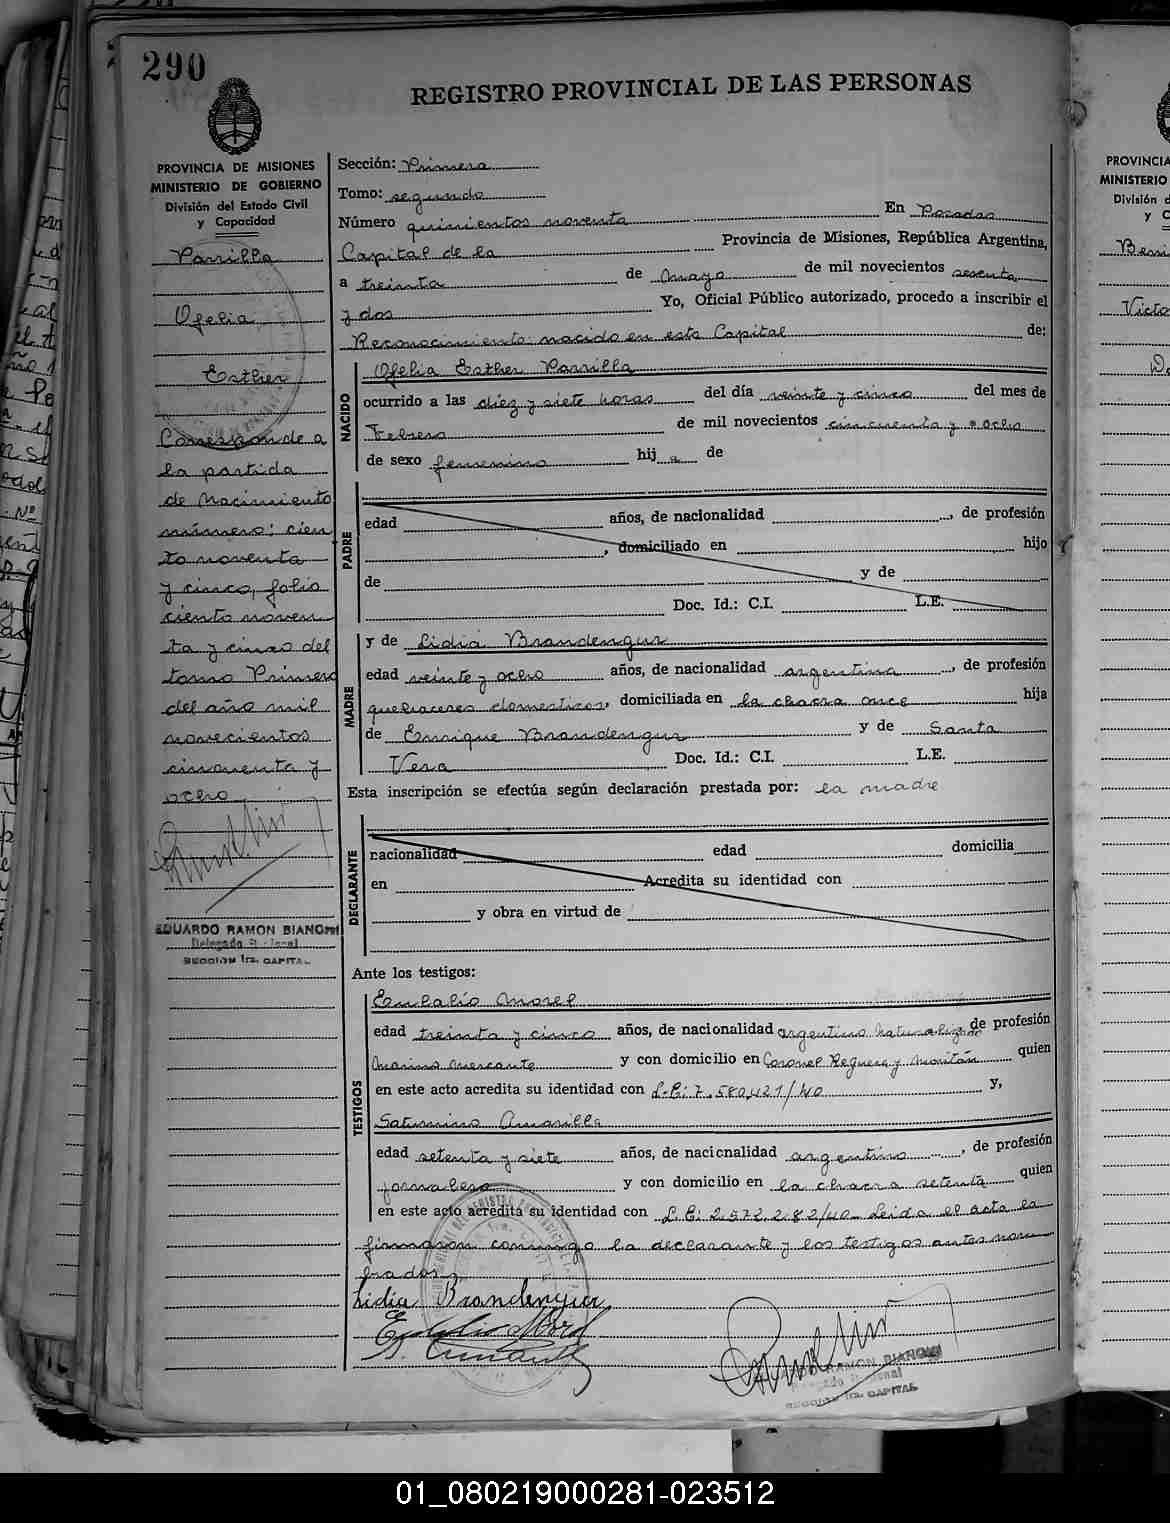 290
REGISTRO PROVINCIAL DE LAS PERSONAS
PROVINCIA DE MISIONES
MINISTERIO DE GOBIERNO
División del Estado Civil
y Capacidad
Parrilla
Ofelia
Esther
Corresponde a
la partida
de Nacimiento
número: cien
to noventa
y cinco, folio
ciento noven
ta y cinco del
tomo Primero
del año mil
novecientos
cincuenta y
ocho
EDUARDO RAMON BIANGHI
Delegado Regional
SECCION 1ra. CAPITAL
Sección: Primera
Tomo: segundo
Número quinientos noventa En Posadas
Capital de la Provincia de Misiones, República Argentina,
a treinta de Mayo de mil novecientos sesenta
y dos Yo, Oficial Público autorizado, procedo a inscribir el
Reconocimiento: nacido en esta Capital de:
NACIDO
Ofelia Esther Parrilla
ocurrido a las diez y siete horas del día veinte y cinco del mes de
Febrero de mil novecientos cincuenta y ocho
de sexo femenino hij a de
PADRE
edad años, de nacionalidad , de profesión
, domiciliado en hijo
de y de
Doc. Id.: C.I. L.E.
MADRE
y de Lidia Brandengur
edad veinte y ocho años, de nacionalidad argentina , de profesión
quehaceres domesticos, domiciliada en la chacra once hija
de Enrique Brandengur y de Santa
Vera Doc. Id.: C.I. L.E.
Esta inscripción se efectúa según declaración prestada por: la madre
DECLARANTE
nacionalidad edad domicilia
en Acredita su identidad con
y obra en virtud de
Ante los testigos:
TESTIGOS
Eulalio Morel
edad treinta y cinco años, de nacionalidad argentino naturalizado de profesión
Marino Mercante y con domicilio en Coronel Reguera y Moritán quien
en este acto acredita su identidad con L.E: 7.580.421/40 y,
Saturnino Amarilla
edad setenta y siete años, de nacionalidad argentino , de profesión
jornalero y con domicilio en la chacra setenta quien
en este acto acredita su identidad con L.E: 2.572.282/40_ Leida el acta la
firmaron conmigo la declarante y los testigos antes nom
brados
Lidia Brandengur
Eulalio Morel
RAMON BIANGHI
Delegado Regional
SECCION 1ra. CAPITAL
PROVINCIA
MINISTERIO
División d
y C
Victo
01_080219000281-023512